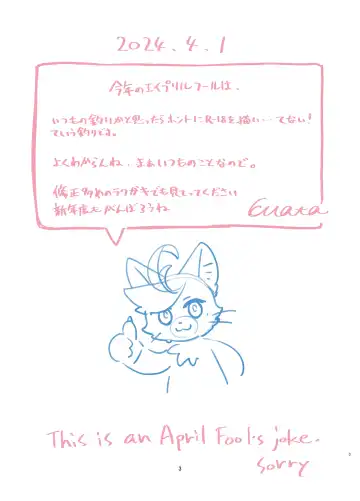 2024.4.1
今年のエイプリルフールは、
いつもの釣りかと思ったらホントにR-18を描い……てない!
ていう釣りだよ。
よくわからんね。まぁいつものことなので。
修正多めのラクガキでも見てってください
新年度もがんばろうね
Enara
This is an April Fool's joke.
sorry
3